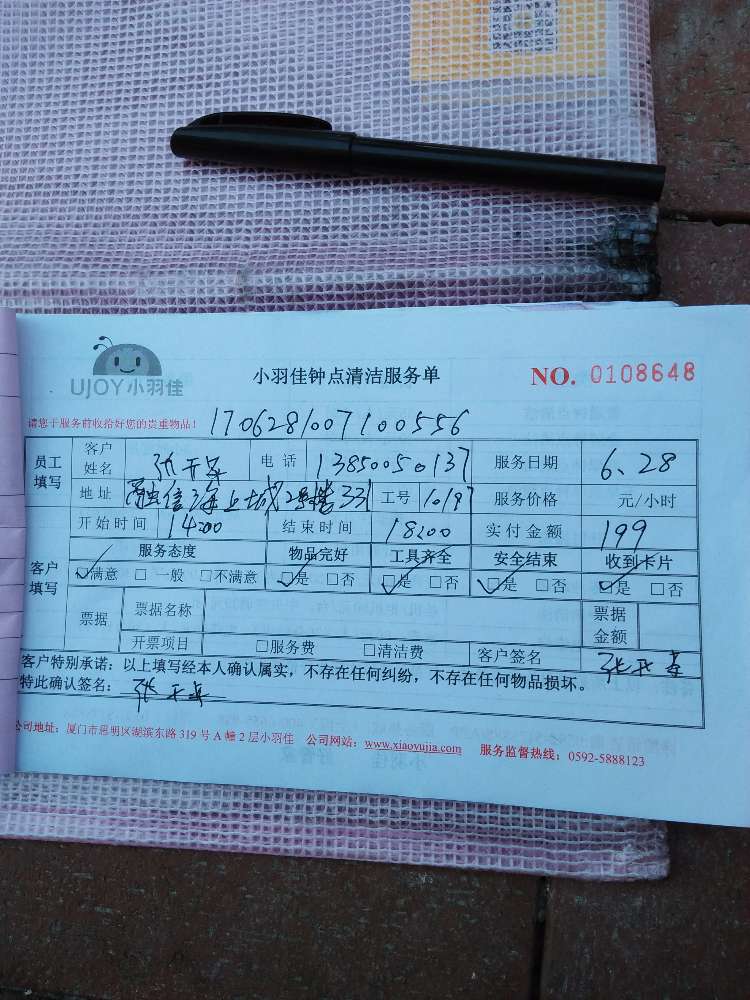 UJOY小羽佳
小羽佳钟点清洁服务单 NO. 0108648
请您于服务前收拾好您的贵重物品! 1706281007100556
员工填写 客户姓名 张 电话 13850050137 服务日期 6.28
地址 融信海上城2号楼331 工号 10197 服务价格 元/小时
开始时间 14:00 结束时间 18:00 实付金额 199
客户填写 服务态度 物品完好 工具齐全 安全结束 收到卡片
满意 一般 不满意 是 否 是 否 是 否 是 否
票据 票据名称 票据金额
开票项目 服务费 清洁费 客户签名 张
客户特别承诺:以上填写经本人确认属实,不存在任何纠纷,不存在任何物品损坏。
特此确认签名: 张
公司地址:厦门市思明区湖滨东路 319 号 A 幢 2 层小羽佳 公司网站:www.xiaoyujia.com 服务监督热线:0592-5888123